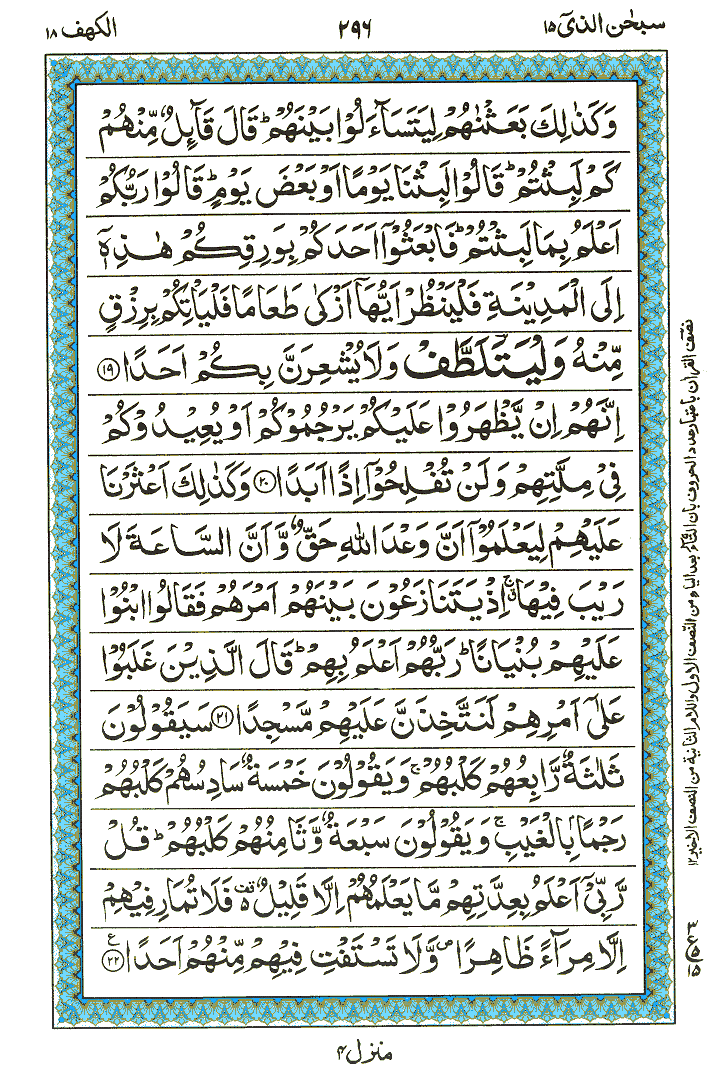 سبحٰن الذیٓ ۱۵
۲۹۶
الکهف ۱۸
وَكَذٰلِكَ بَعَثْنٰهُمْ لِيَتَسَآءَلُوْا بَيْنَهُمْ ؕ قَالَ قَآئِلٌ مِّنْهُمْ
كَمْ لَبِثْتُمْ ؕ قَالُوْا لَبِثْنَا يَوْمًا اَوْ بَعْضَ يَوْمٍ ؕ قَالُوْا رَبُّكُمْ
اَعْلَمُ بِمَا لَبِثْتُمْ ؕ فَابْعَثُوْۤا اَحَدَكُمْ بِوَرِقِكُمْ هٰذِهٖۤ
اِلَى الْمَدِيْنَةِ فَلْيَنْظُرْ اَيُّهَاۤ اَزْكٰى طَعَامًا فَلْيَاْتِكُمْ بِرِزْقٍ
مِّنْهُ وَلْيَتَلَطَّفْ وَلَا يُشْعِرَنَّ بِكُمْ اَحَدًا ۱۹
اِنَّهُمْ اِنْ يَّظْهَرُوْا عَلَيْكُمْ يَرْجُمُوْكُمْ اَوْ يُعِيْدُوْكُمْ
فِيْ مِلَّتِهِمْ وَلَنْ تُفْلِحُوْۤا اِذًا اَبَدًا ۲۰ وَكَذٰلِكَ اَعْثَرْنَا
عَلَيْهِمْ لِيَعْلَمُوْۤا اَنَّ وَعْدَ اللّٰهِ حَقٌّ وَّاَنَّ السَّاعَةَ لَا
رَيْبَ فِيْهَا ۚ اِذْ يَتَنَازَعُوْنَ بَيْنَهُمْ اَمْرَهُمْ فَقَالُوا ابْنُوْا
عَلَيْهِمْ بُنْيَانًا ؕ رَبُّهُمْ اَعْلَمُ بِهِمْ ؕ قَالَ الَّذِيْنَ غَلَبُوْا
عَلٰۤى اَمْرِهِمْ لَنَتَّخِذَنَّ عَلَيْهِمْ مَّسْجِدًا ۲۱ سَيَقُوْلُوْنَ
ثَلٰثَةٌ رَّابِعُهُمْ كَلْبُهُمْ ۚ وَيَقُوْلُوْنَ خَمْسَةٌ سَادِسُهُمْ كَلْبُهُمْ
رَجْمًۢا بِالْغَيْبِ ۚ وَيَقُوْلُوْنَ سَبْعَةٌ وَّثَامِنُهُمْ كَلْبُهُمْ ؕ قُلْ
رَّبِّيْۤ اَعْلَمُ بِعِدَّتِهِمْ مَّا يَعْلَمُهُمْ اِلَّا قَلِيْلٌ فَلَا تُمَارِ فِيْهِمْ
اِلَّا مِرَآءً ظَاهِرًا ۪ وَّلَا تَسْتَفْتِ فِيْهِمْ مِّنْهُمْ اَحَدًا ۲۲ ع
نصف القرآن باعتبار عدد الحروف بان التاء بعد الیاء من النصف الاول واللام الثانیة من النصف الاخیر ۱۲
منزل ۴